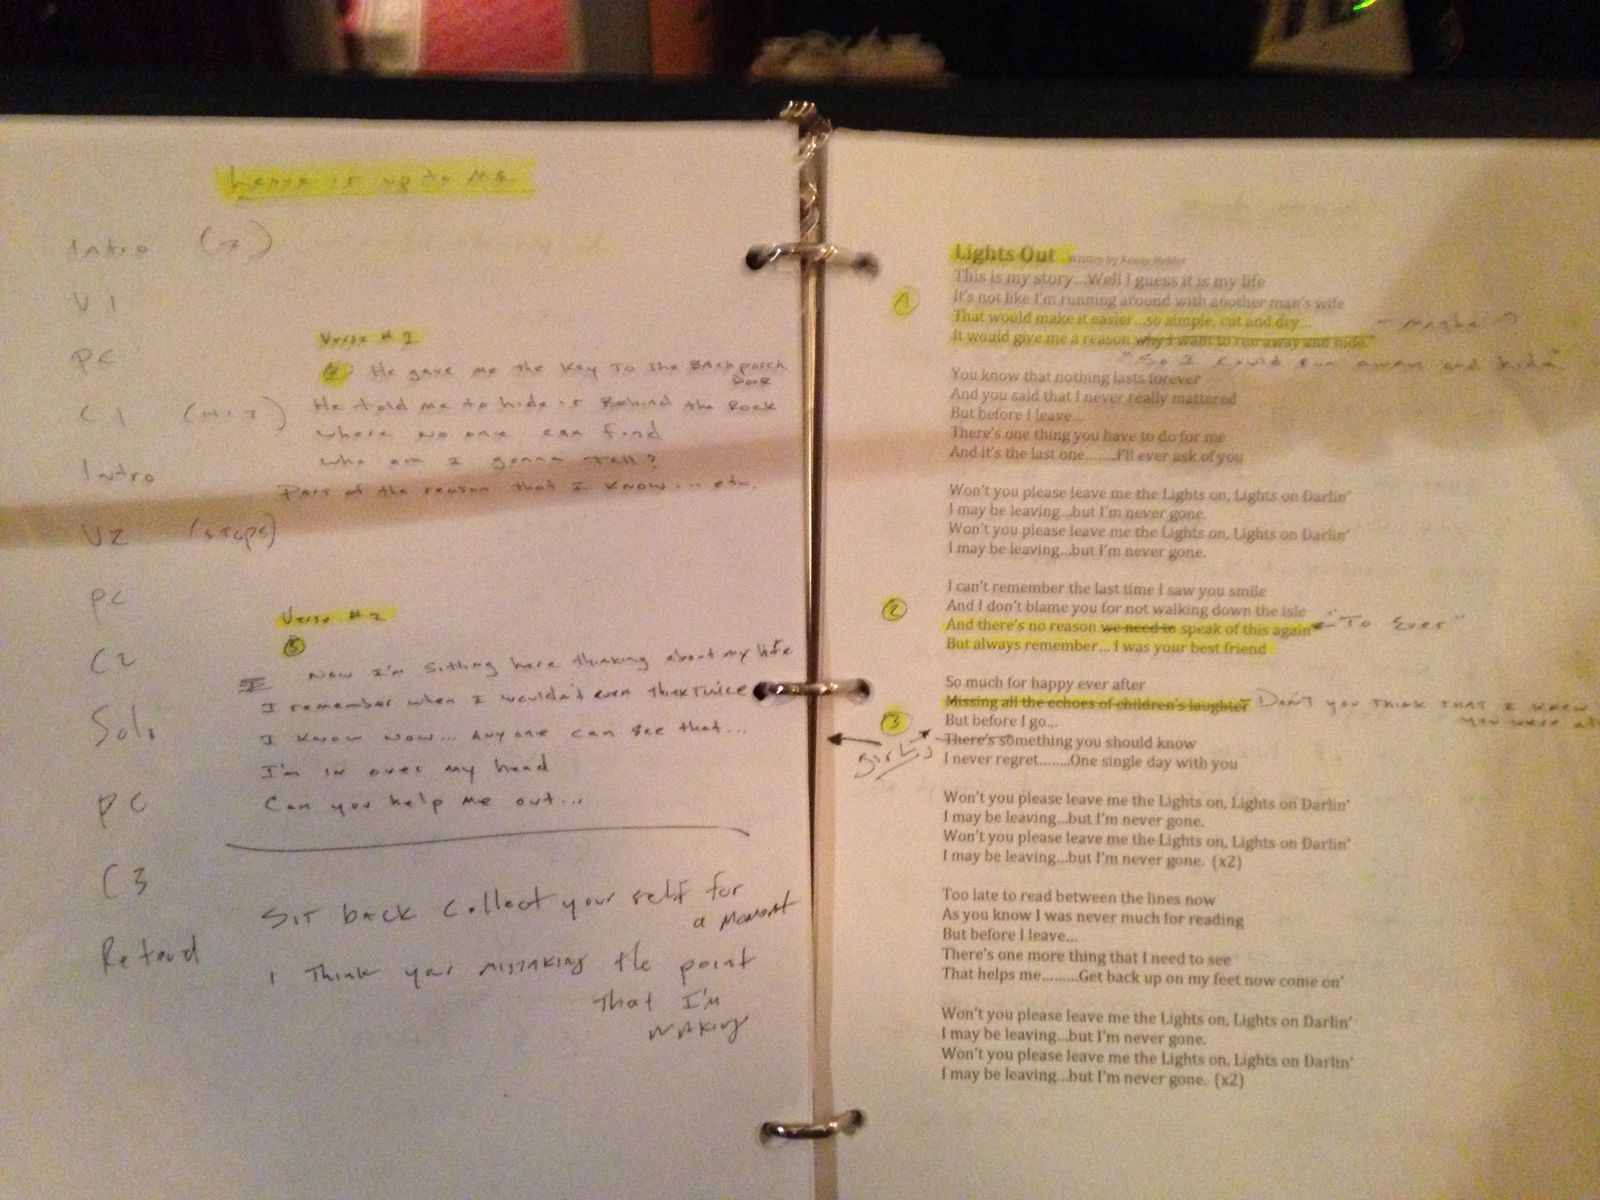 Leave it up to Me
Intro (7)
V1
PC
C1 (HIT)
Intro
V2 (stops)
PC
C2
Solo
PC
C3
Verse # 1
He gave me the Key To The BACK porch
Door
He told me to hide it Behind the Rock
where no one can find
who am I gonna tell?
Part of the reason that I know... etc.
Verse # 2
5
Now I'm sitting here thinking about my life
I remember when I wouldn't even think twice
I know now... Anyone can see that...
I'm in over my head
Can you help me out...
Sit back collect your self for
a moment
I Think your mistaking the point
That I'm
making
Lights Out Written by Kenny
1
This is my story...Well I guess it is my life
It's not like I'm running around with another man's wife
That would make it easier...so simple, cut and dry... - Maybe?
It would give me a reason why I want to run away and hide.
"So I could run away and hide"
You know that nothing lasts forever
And you said that I never really mattered
But before I leave...
There's one thing you have to do for me
And it's the last one........I'll ever ask of you
Won't you please leave me the Lights on, Lights on Darlin'
I may be leaving...but I'm never gone.
Won't you please leave me the Lights on, Lights on Darlin'
I may be leaving...but I'm never gone.
I can't remember the last time I saw you smile
2
And I don't blame you for not walking down the isle
And there's no reason we need to speak of this again "To Ever"
But always remember... I was your best friend
So much for happy ever after
Missing all the echoes of children's laughter Don't you think that I knew
you were
3
But before I go...
There's something you should know
I never regret........One single day with you
Won't you please leave me the Lights on, Lights on Darlin'
I may be leaving...but I'm never gone.
Won't you please leave me the Lights on, Lights on Darlin'
I may be leaving...but I'm never gone. (x2)
Too late to read between the lines now
As you know I was never much for reading
But before I leave...
There's one more thing that I need to see
That helps me.........Get back up on my feet now come on'
Won't you please leave me the Lights on, Lights on Darlin'
I may be leaving...but I'm never gone.
Won't you please leave me the Lights on, Lights on Darlin'
I may be leaving...but I'm never gone. (x2)